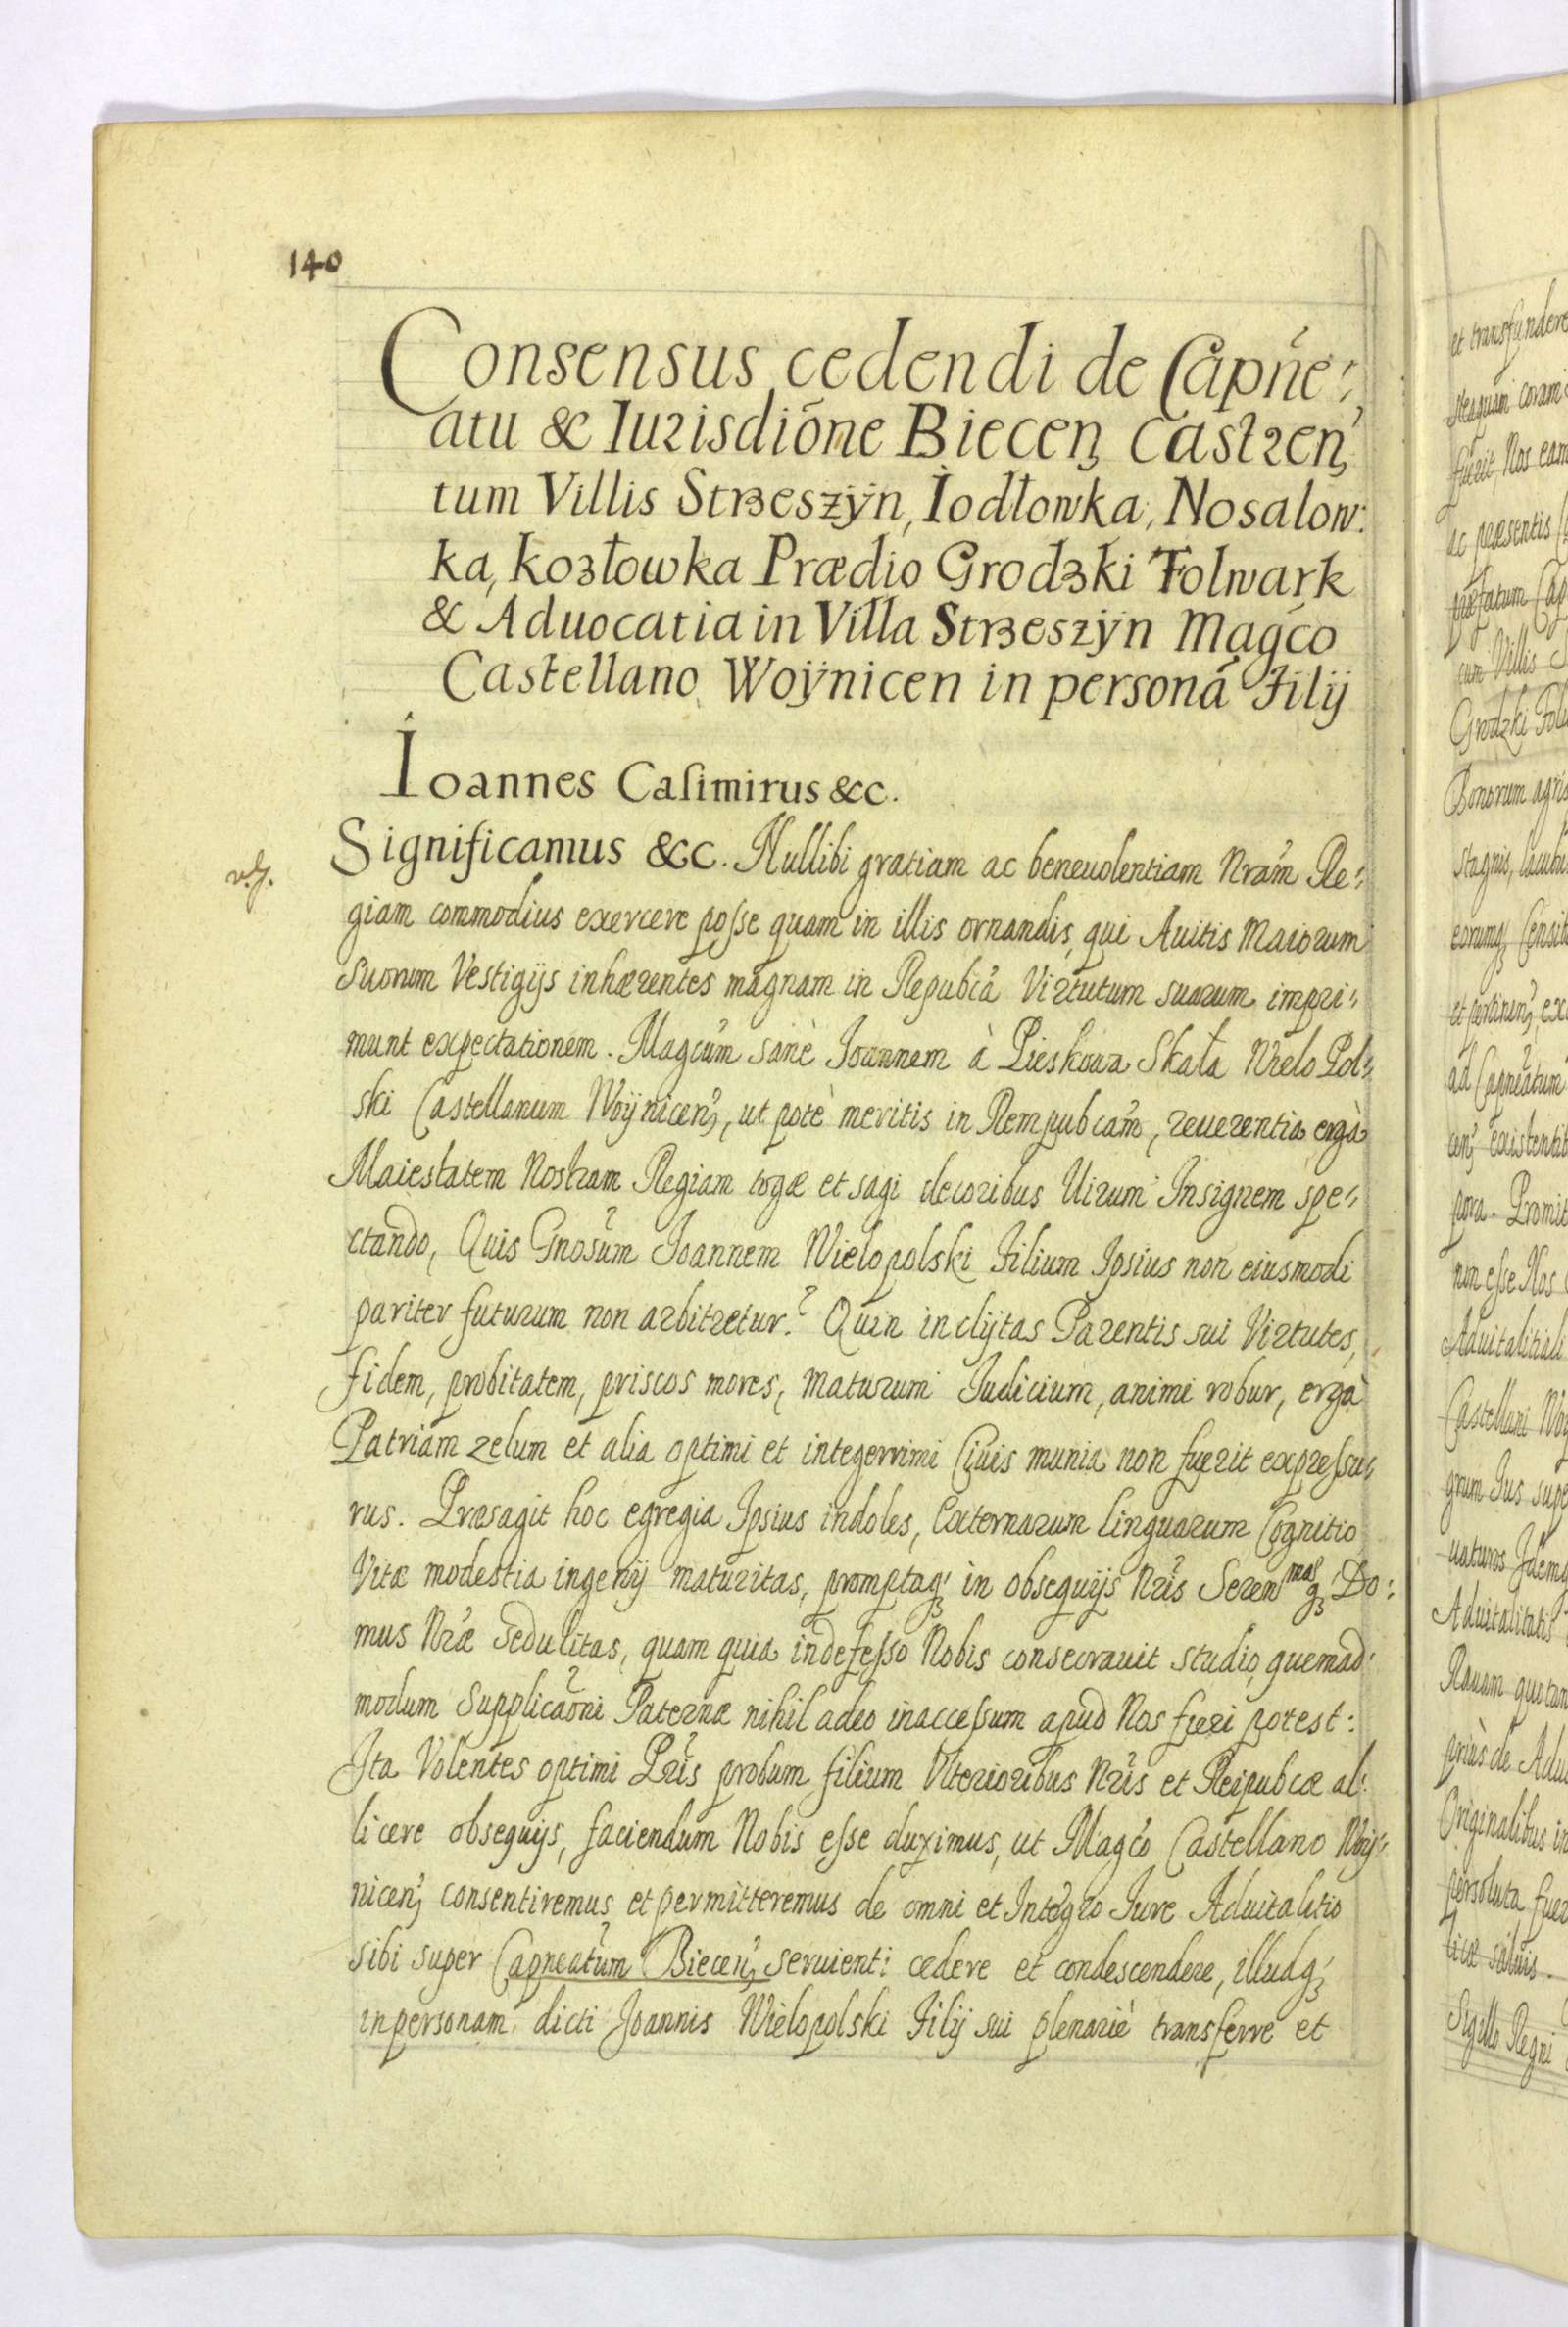 140
Consensus cedendi de Capñe⸗
atu & Iurisdióne Biecen̨ Castren̨
tum Villis Strzeszÿn, Iodłowka, Nosalow:
ka, Kozłowka Prædio Grodzki Folwark
& Aduocatia in Villa Strzeszÿn Magco
Castellano Woÿnicen in personã Filij
Ioannes Casimirus &c.
Significamus &c. Nullibi gratiam ac beneuolentiam Nram Re⸗
giam commodius exercere posse quam in illis ornandis, qui Auitis Maiorum
Suorum Vestigijs inhærentes magnam in Repubca Virtutum suarum impri⸗
munt expectationem. Magcum sanè Ioannem à Pieskowa Skała Wielo Pol⸗
ski Castellanum Woÿnicen̨, ut potè meritis in Rempubcam, reuerentia ergà
Maiestatem Nostram Regiam togæ et sagi decoribus Uirum Insignem spe⸗
ctando, Quis Gnosum Joannem Wielopolski Filium Ipsius non eiusmodi
pariter futurum non arbitretur? Quin inclÿtas Parentis sui Virtutes,
fidem, probitatem, priscos mores, maturum Iudicium, animi robur, ergà
Patriam zelum et alia optimi et integerrimi Ciuis munia non fuerit expressu⸗
rus. Præsagit hoc egregia Ipsius indoles, Externarum linguarum Cognitio
Vitæ modestia ingenij maturitas, promptaq; in obsequijs Nris Serenmæq; Do:
mus Nræ sedulitas, quam quia indefesso Nobis consecrauit studio, quemad⸗
modum Supplicaoni Paternæ nihil adeo inaccessum apud Nos fieri potest:
Ita Volentes optimi Pris probum filium Vlterioribus Nris et Reipubcæ al⸗
licere obsequijs, faciendum Nobis esse duximus, ut Magco Castellano Woÿ⸗
nicen̨ consentiremus et permitteremus de omni et Integro Iure Aduitalitio
sibi super Capneatum Biecen̨ seruienti cedere et condescendere, illudq;
in personam dicti Joannis Wielopolski Filij sui plenariè transferre et